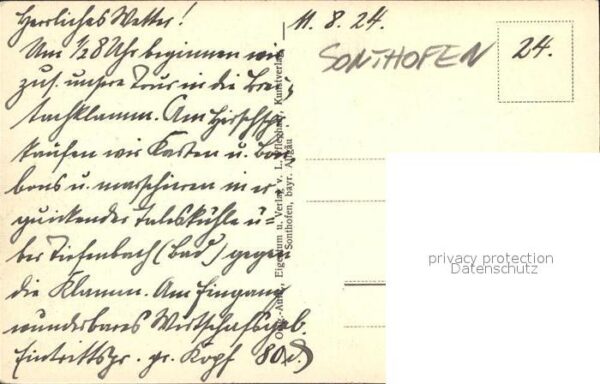 Herrliches Wetter!
Um 1/2 8 Uhr beginnen wir
zus. unsere Tour in die Brei-
tachklamm. Am Hirschspr.
kaufen wir Karten u. Bon-
bons u. marschieren in er-
quickender Taleskühle ü-
ber Tiefenbach (Bad) gegen
die Klamm. Am Eingang
wunderbares Wirtschaftsgeb.
Eintrittspr. pr. Kopf 80 d.
11. 8. 24.
SONTHOFEN
24.
Orig.-Aufn., Eigentum u. Verlag v. L. Pfleghar, Kunstverlag
Sonthofen, bayr. Allgäu
privacy protection
Datenschutz